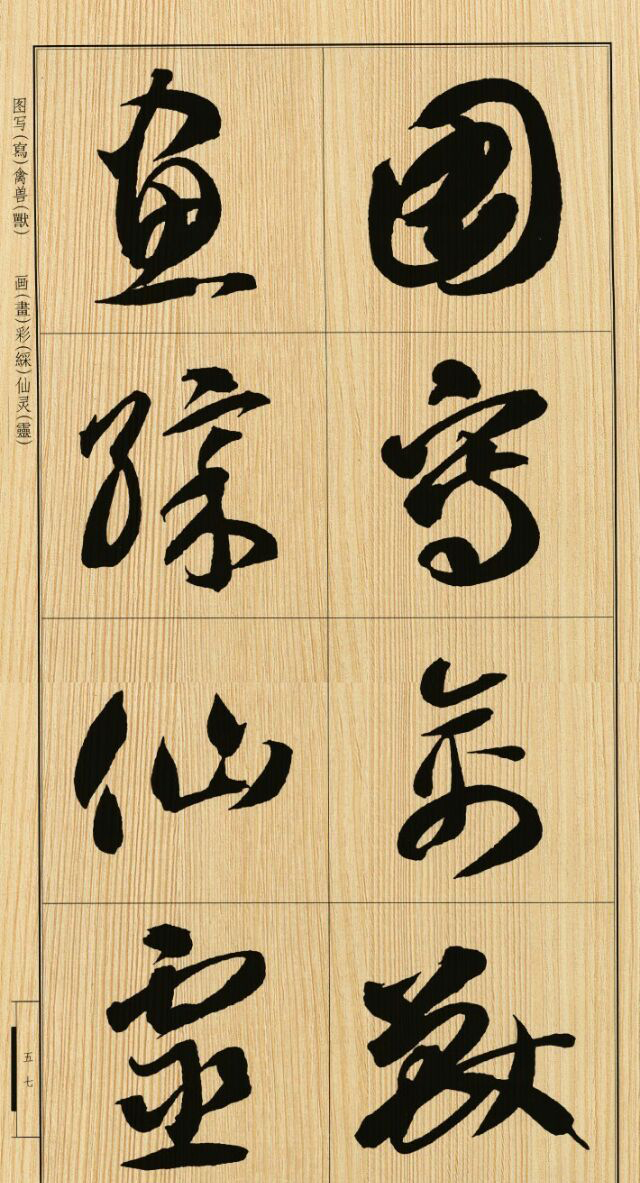 图写禽獸
畫綵仙靈
图写(寫)禽兽(獸) 画(畫)彩(綵)仙灵(靈)
五七